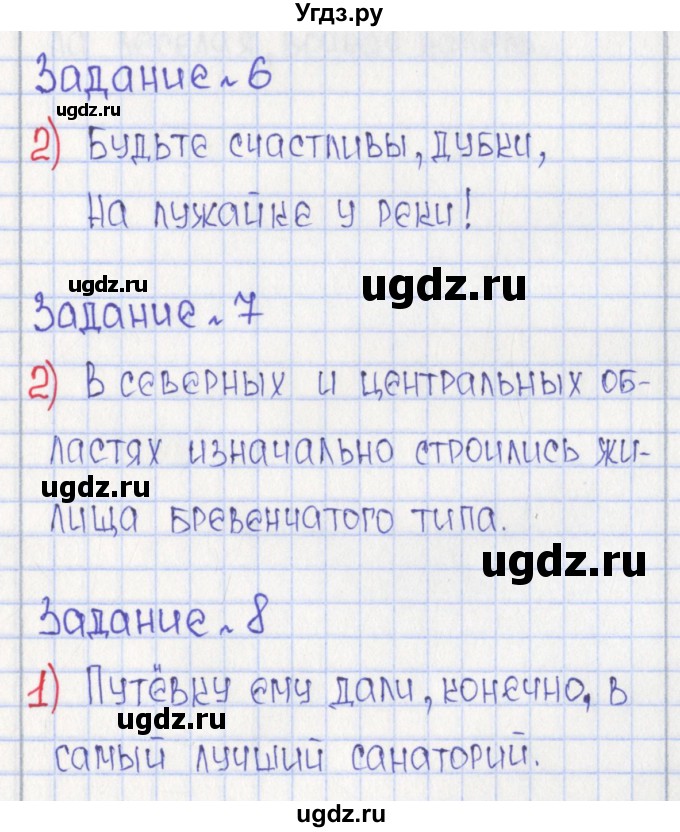 Угдз.ру
Задание № 6
ugdz.ru
2) Будьте счастливы, дубки,
На лужайке у реки!
ugdz.ru
ugdz.ru
Задание № 7
2) В северных и центральных об-
ластях изначально строились жи-
ugdz.ru
лища бревенчатого типа.
ugdz.ru
Задание № 8
1) Путёвку ему дали, конечно, в
ugdz.ru
самый лучший санаторий.
ugdz.ru